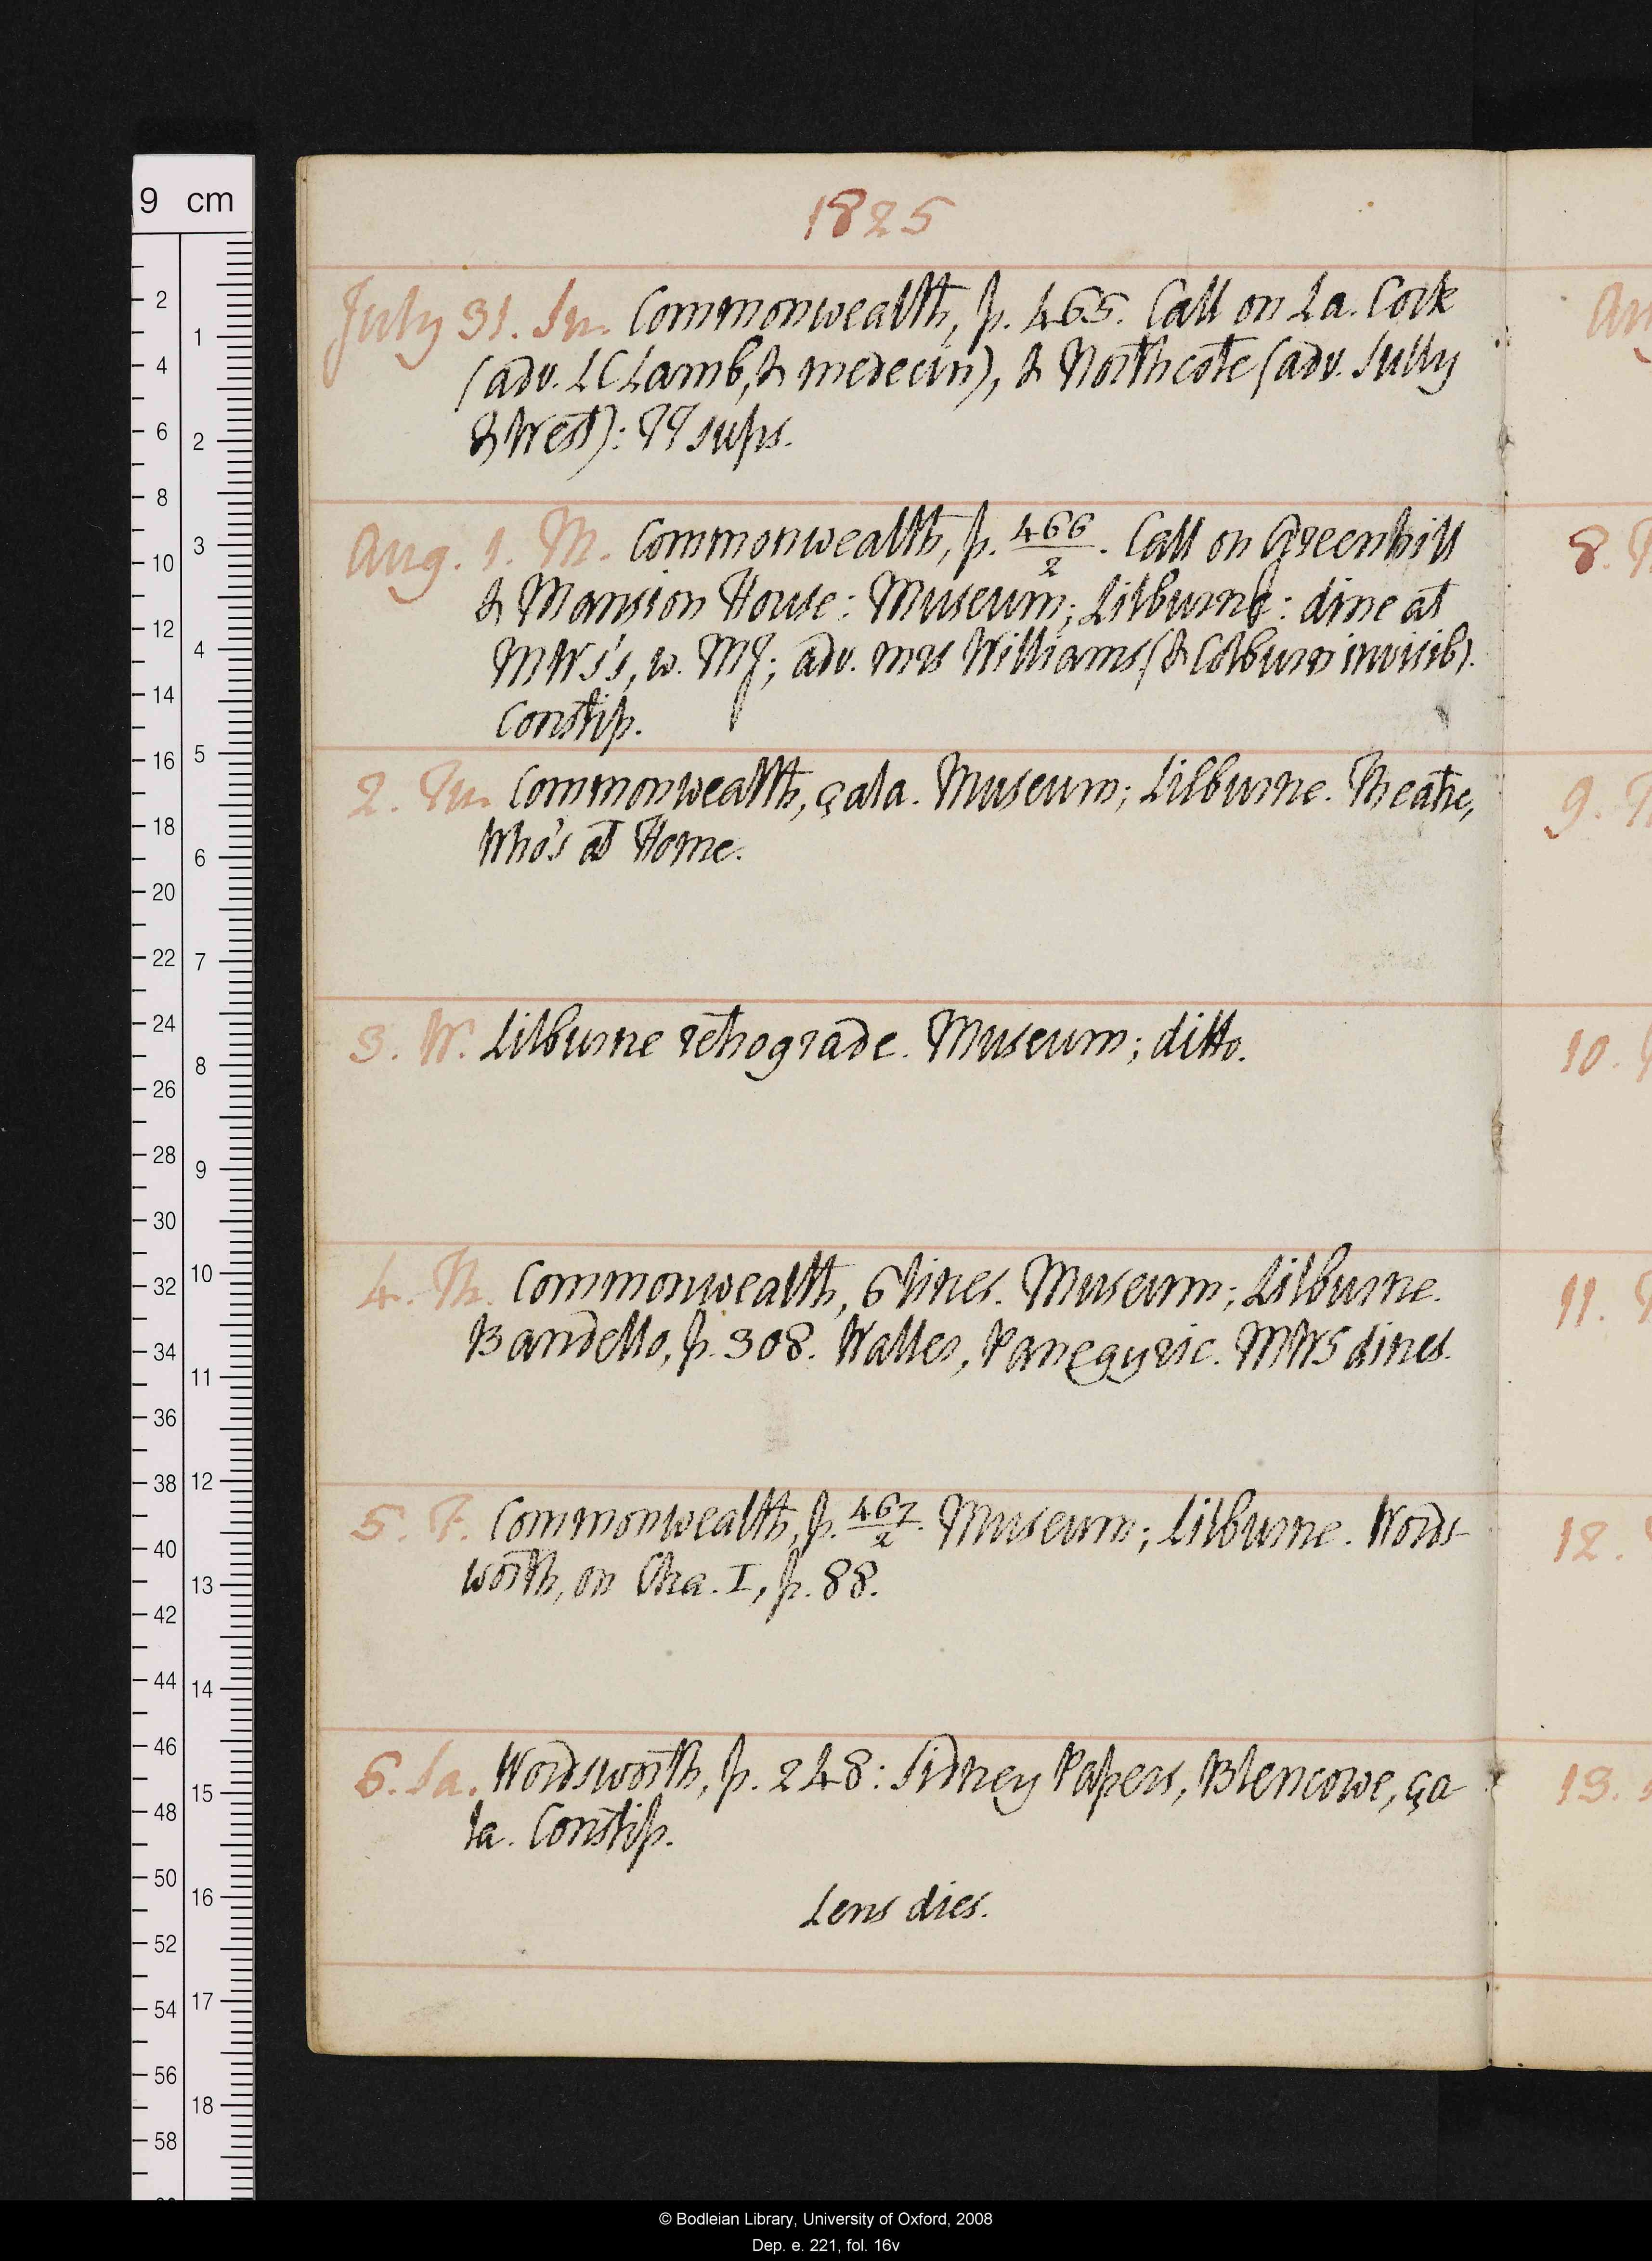 1825
July 31. Su. Commonwealth, p. 465. Call on La. Cork
(adv. LC Lamb, & medecin), & Northcote (adv. Sully
& West): TT sups.
Aug. 1. M. Commonwealth, p. 466/2. Call on Greenhill
& Mansion House: Museum; Lilburne: dine at
MWS's, w. MJ; adv. mrs Williams (& Colburn invisib).
Constip.
2. Tu. Commonwealth, çala. Museum; Lilburne. Theatre,
Who's at Home.
3. W. Lilburne retrograde. Museum; ditto.
4. Th. Commonwealth, 6 lines. Museum; Lilburne.
Bandello, p. 308. Waller, Panegyric. MWS dines.
5. F. Commonwealth, p. 467/2. Museum; Lilburne. Words-
worth, on Cha. I, p. 88.
6. Sa. Wordsworth, p. 248: Sidney Papers, Blencowe, ça
la. Constip.
Lens dies.
Au
8.
9.
10.
11.
12.
13.
9 cm
2
4
6
8
10
12
14
16
18
20
22
24
26
28
30
32
34
36
38
40
42
44
46
48
50
52
54
56
58
1
2
3
4
5
6
7
8
9
10
11
12
13
14
15
16
17
18
© Bodleian Library, University of Oxford, 2008
Dep. e. 221, fol. 16v